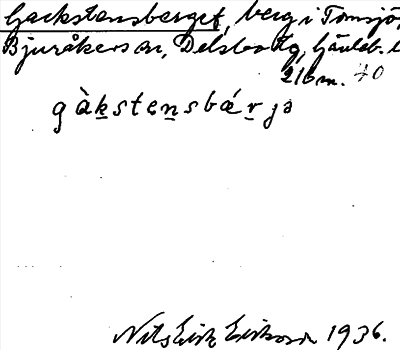 Gackstensberget, berg i Tomsjö,
Bjuråkers sn, Delsbo tg, Gävleb. l.
216 m. 40
gàkstensbǽrjə
Nils Erik Eriksson 1936.